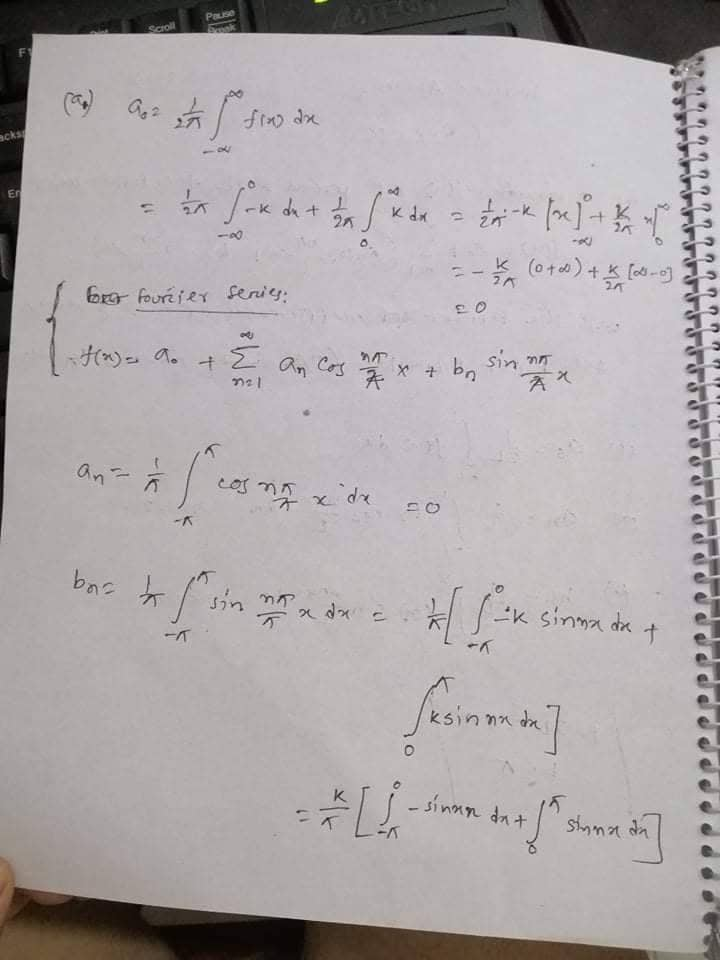 Pause
Break
Scroll
a₀ = 1/2π ∫_{-∞}^{∞} f(x) dx
= 1/2π ∫_{-∞}^{0} -k dx + 1/2π ∫_{0}^{∞} k dx = 1/2π · -k [x]_{-∞}^{0} + k/2π x]_{0}^{∞}
= - k/2π (0+∞) + k/2π [∞-0]
= 0
fourier series:
f(x) = a₀ + ∑_{n=1}^{∞} aₙ cos nπ/π x + bₙ sin nπ/π x
aₙ = 1/π ∫_{-π}^{π} cos nπ/π x dx = 0
bₙ = 1/π ∫_{-π}^{π} sin nπ/π x dx = 1/π [ ∫_{-π}^{0} -k sin nx dx +
∫_{0}^{π} k sin nx dx ]
= k/π [ ∫_{-π}^{0} - sin nx dx + ∫_{0}^{π} sin nx dx ]